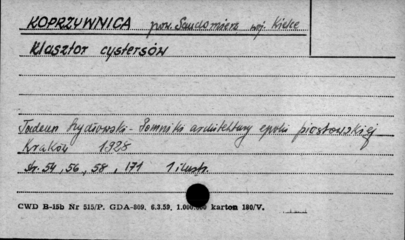 KOPRZYWNICA pow. Sandomierz woj. Kielce
Klasztor cystersów
Tadeusz Szydłowski - Pomniki architektury epoki piastowskiej
Kraków 1928
str. 54, 56, 58, 171 1 ilustr.
CWD B-15b Nr 515/P. GDA-869, 6.3.59, 1.000.000 karton 180/V.